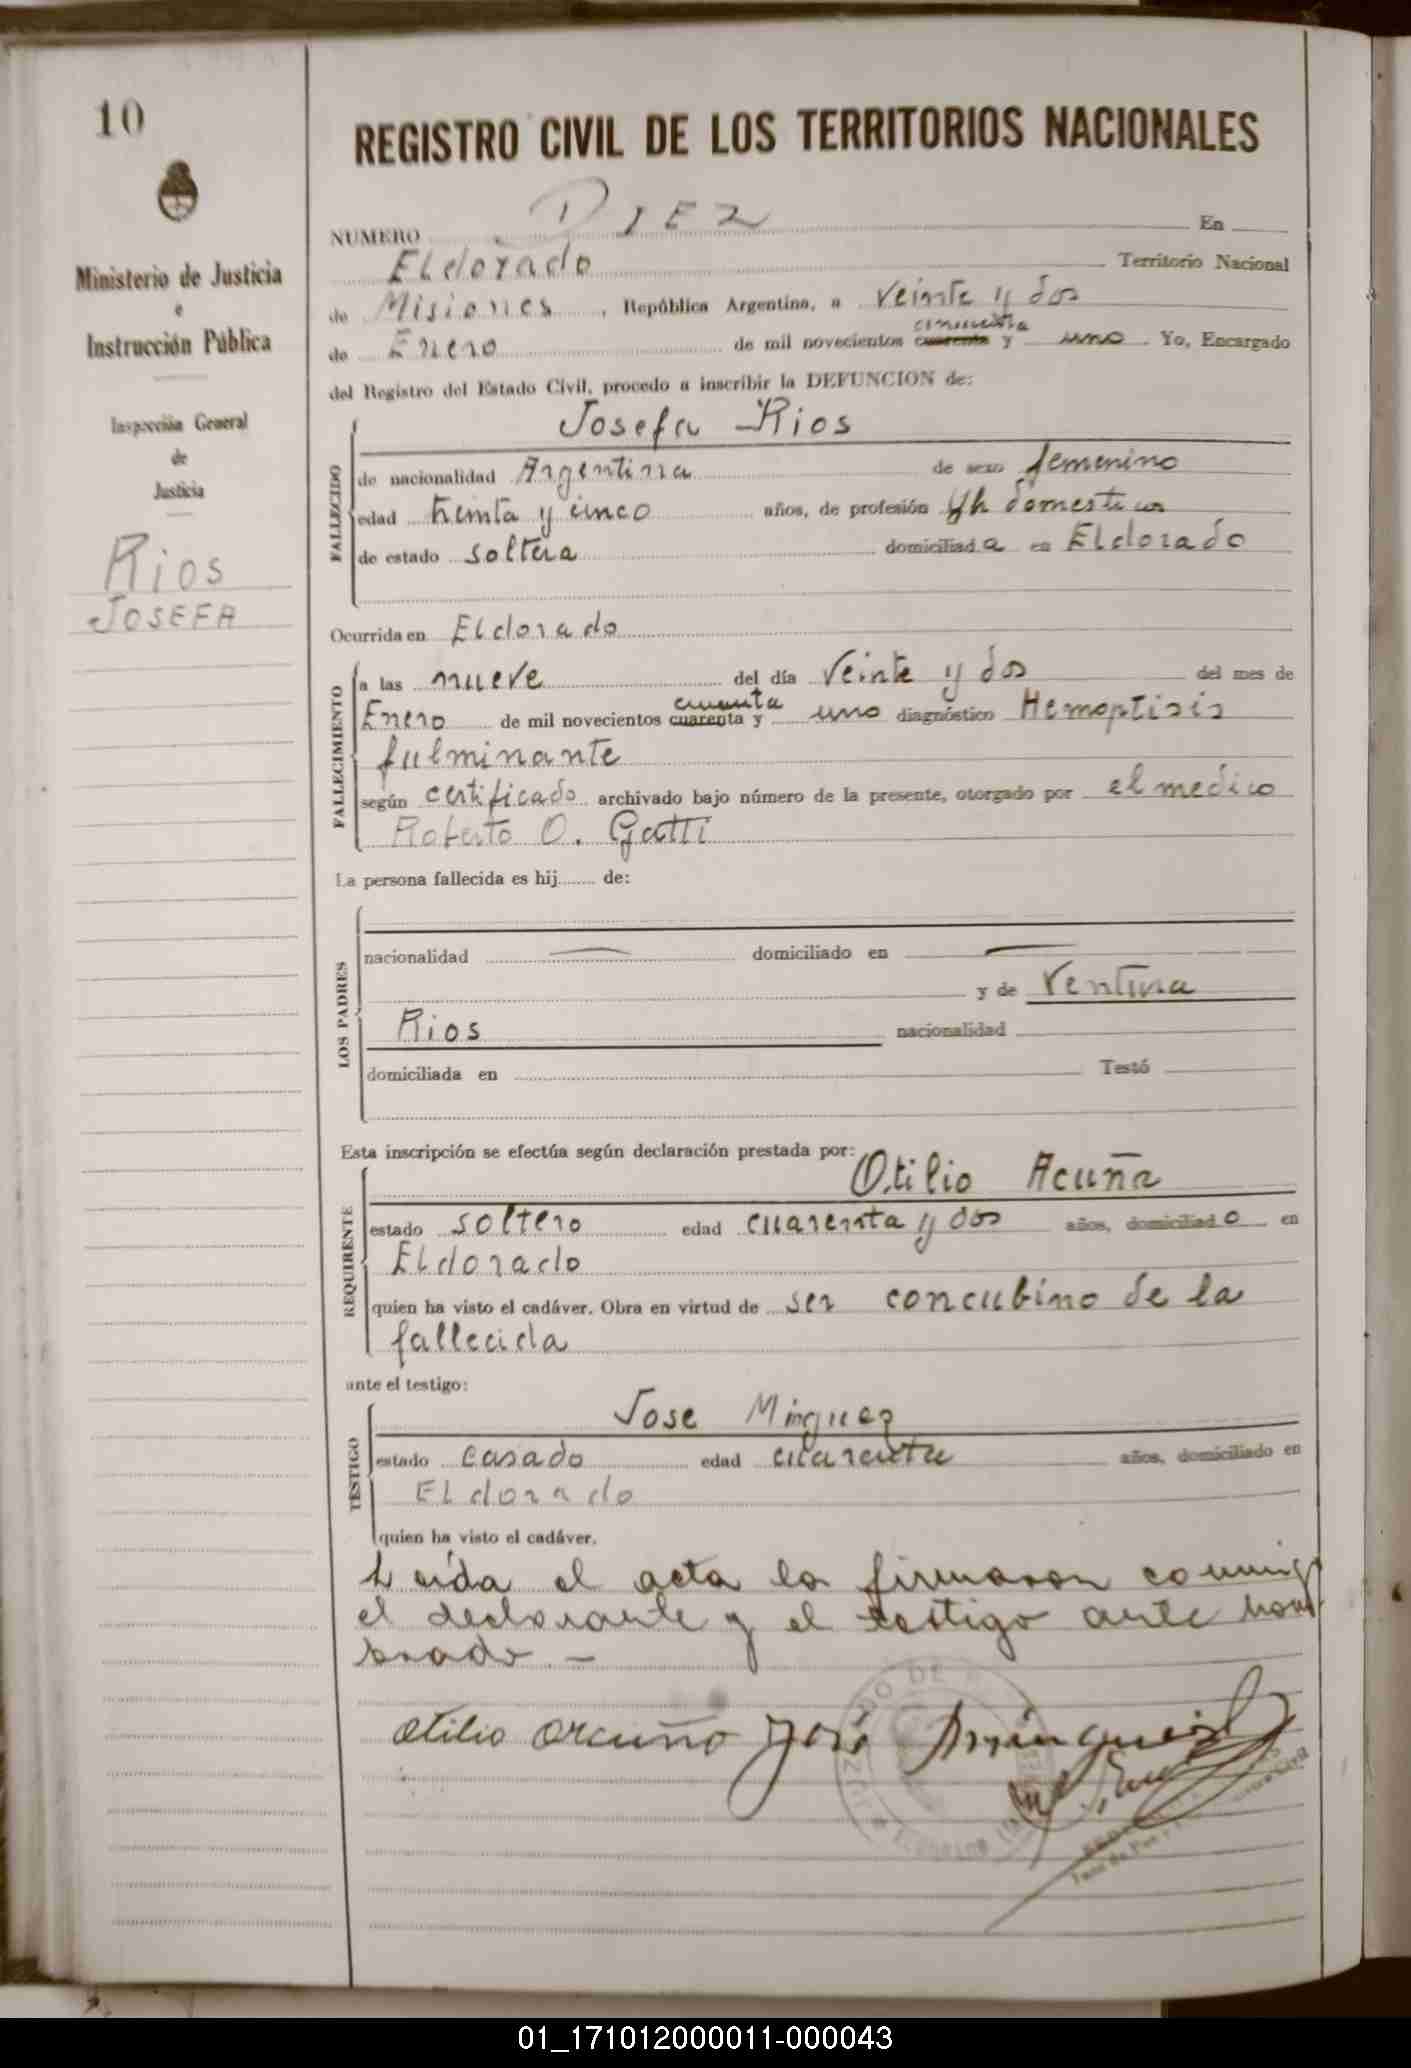 10
Ministerio de Justicia
e
Instrucción Pública
Inspección General
de
Justicia
Rios
JOSEFA
REGISTRO CIVIL DE LOS TERRITORIOS NACIONALES
NUMERO DIEZ En
Eldorado Territorio Nacional
de Misiones, República Argentina, a veinte y dos
cincuenta
de Enero de mil novecientos cuarenta y uno. Yo, Encargado
del Registro del Estado Civil, procedo a inscribir la DEFUNCION de:
Josefa Rios
FALLECIDO
de nacionalidad Argentina de sexo femenino
edad treinta y cinco años, de profesión Qh domesticos
de estado soltera domiciliada en Eldorado
Ocurrida en Eldorado
FALLECIMIENTO
a las nueve del día veinte y dos del mes de
cincuenta
Enero de mil novecientos cuarenta y uno diagnóstico Hemoptisis
fulminante
según certificado archivado bajo número de la presente, otorgado por el medico
Roberto O. Gatti
La persona fallecida es hij de:
LOS PADRES
nacionalidad — domiciliado en —
y de Ventura
Rios nacionalidad
domiciliada en Testó
Esta inscripción se efectúa según declaración prestada por:
Otilio Acuña
REQUIRENTE
estado soltero edad cuarenta y dos años, domiciliado en
Eldorado
quien ha visto el cadáver. Obra en virtud de ser concubino de la
fallecida
ante el testigo:
Jose Minguez
TESTIGO
estado casado edad cuarenta años, domiciliado en
Eldorado
quien ha visto el cadáver.
Leida el acta la firmaron conmigo
el declarante y el testigo ante nom
brado –
otilio acuña José Minguez
01_171012000011-000043